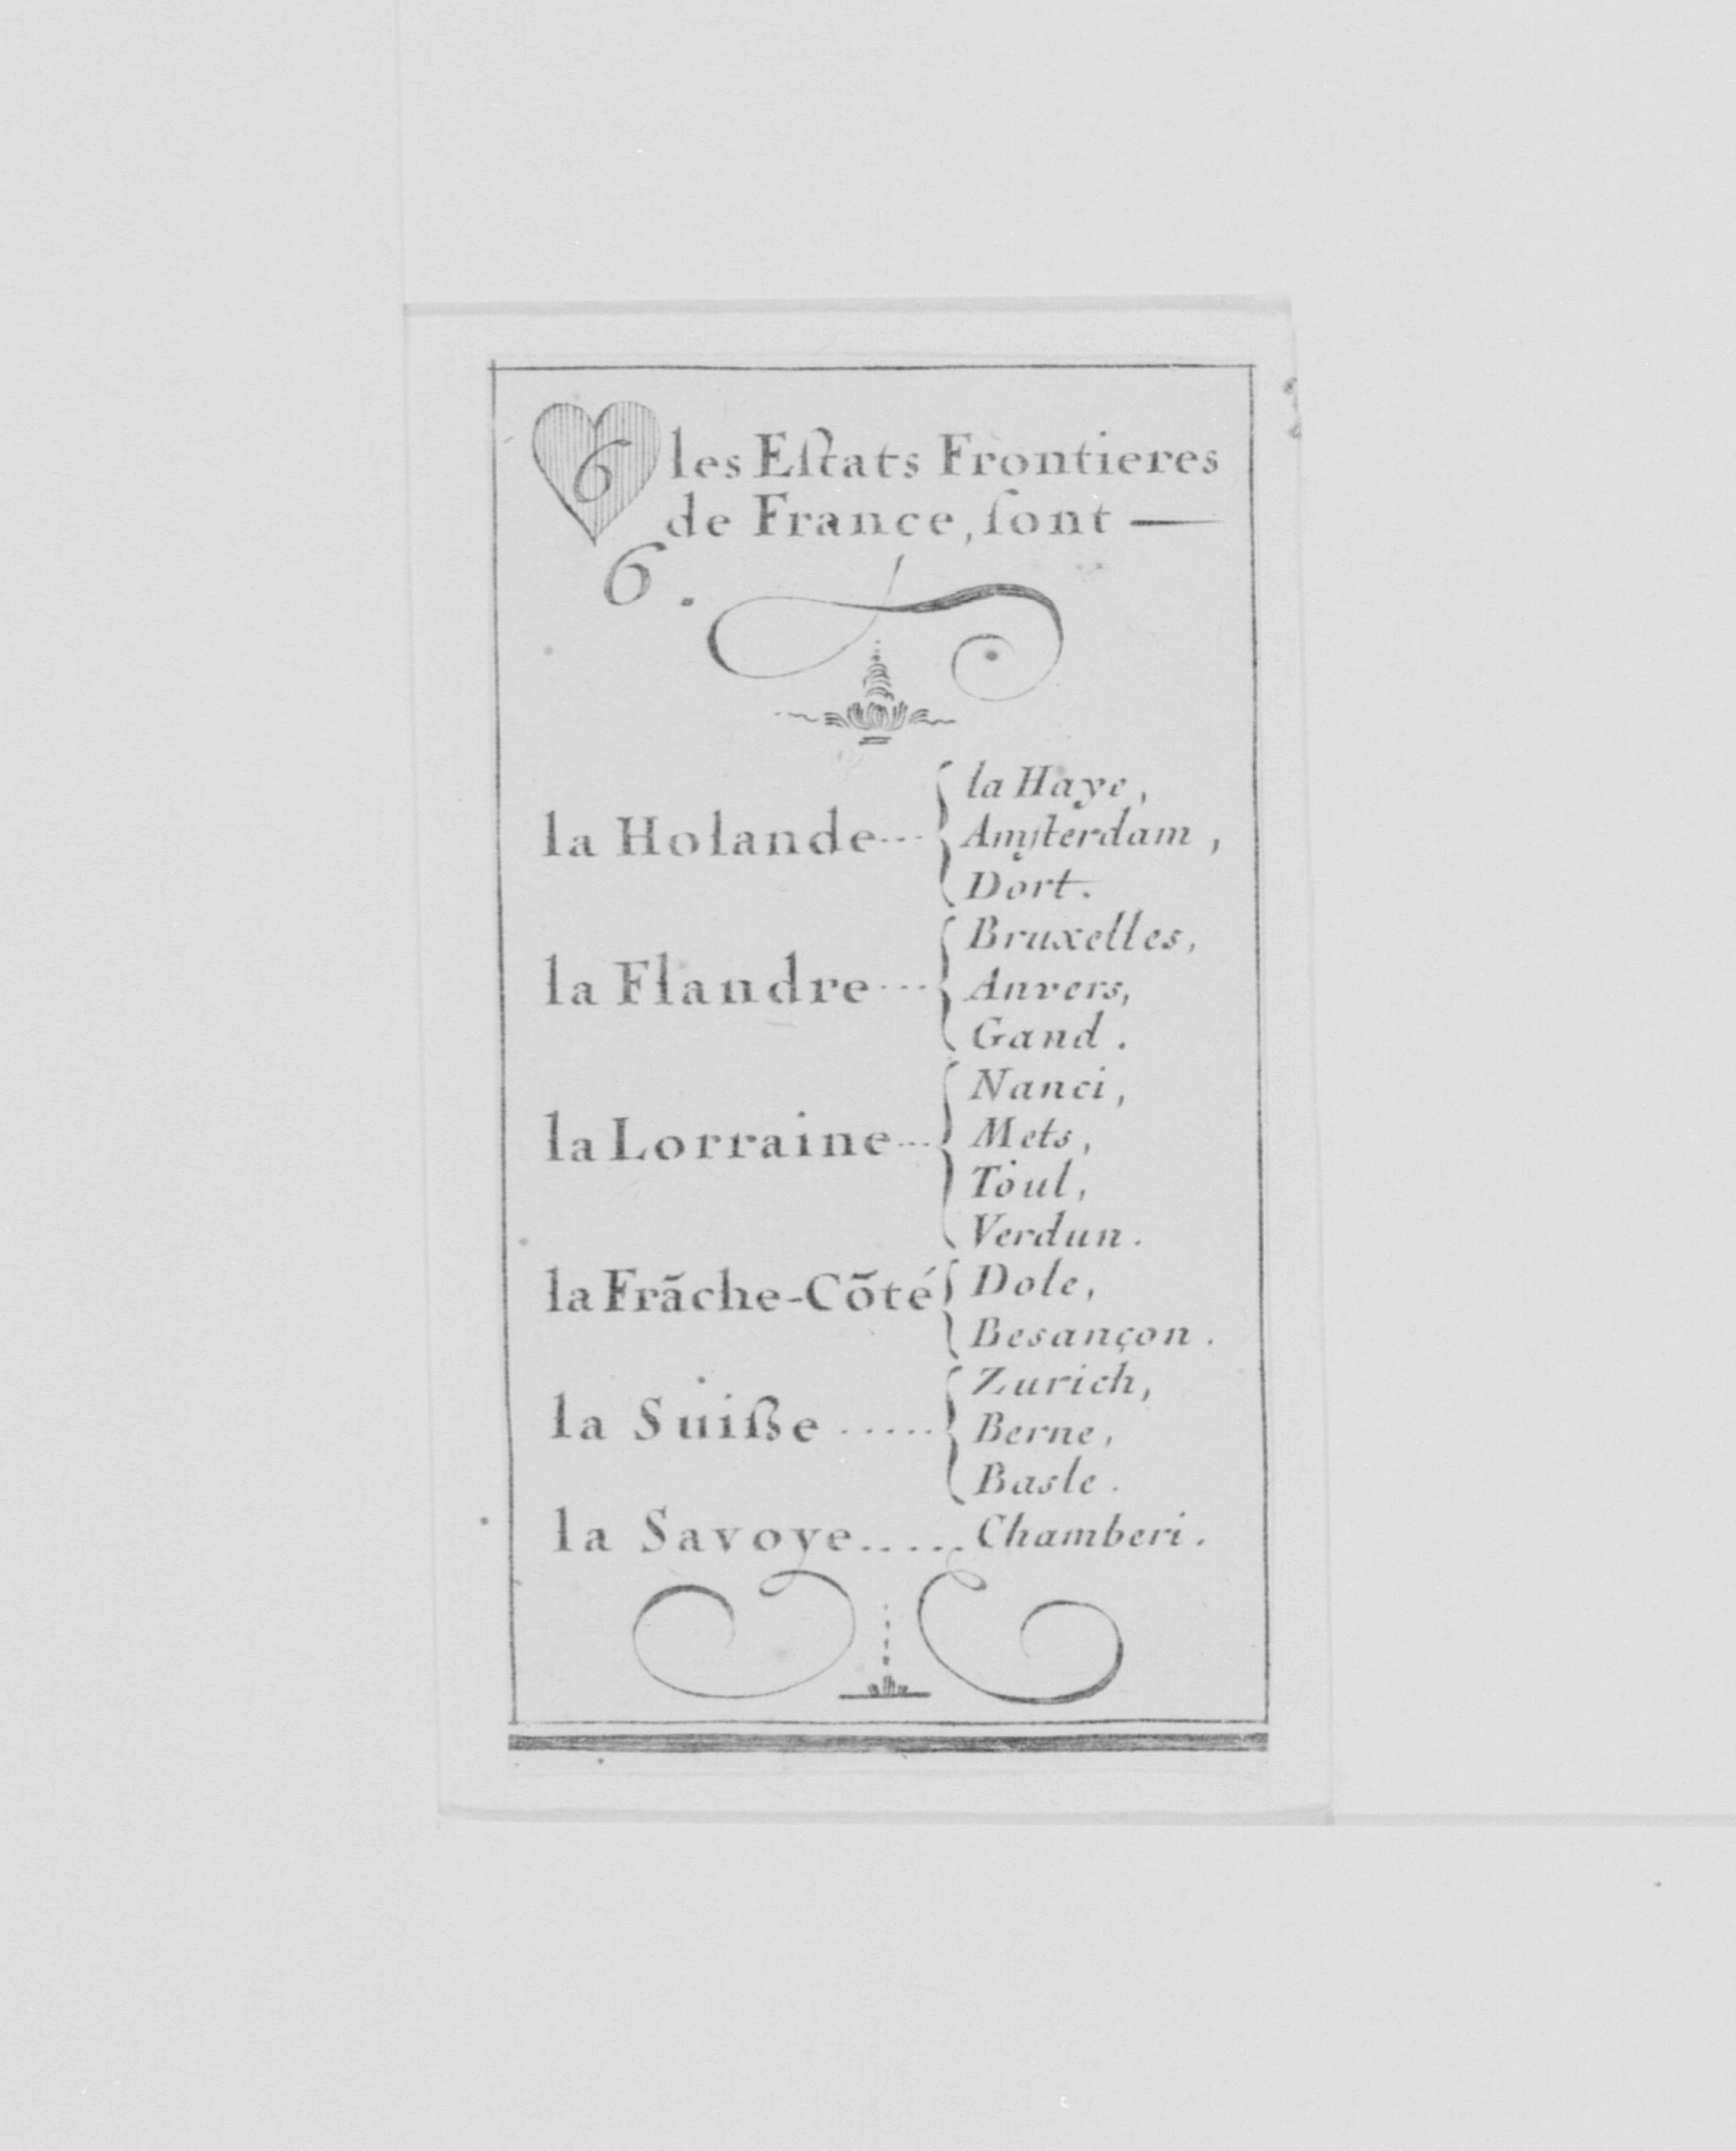 6 les Eſtats Frontieres
de France, ſont —
6.
la Holande... { la Haye,
Amſterdam,
Dort.
la Flandre... { Bruxelles,
Anvers,
Gand.
la Lorraine... { Nanci,
Mets,
Toul,
Verdun.
la Frãche-Cõté { Dole,
Besançon.
la Suiſſe ..... { Zurich,
Berne,
Basle.
la Savoye..... Chamberi.